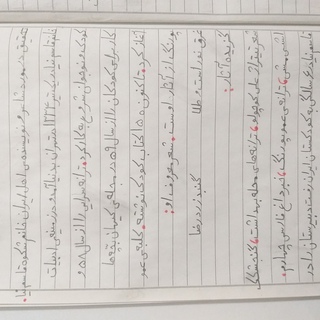 تحقیق در مورد شاعر و نویسنده ی اهل ایران خانم شکوه قاسم نیا.
خانم قاسم نیا در یک تیر ۱۳۳۴ در تهران بدنیا آمد و در زمینه ی ادبیات
کودک و نوجوان شروع به کار کرد. ترانه سرایی را از سال ۵۸ و
کار برای کودکان را از سال ۵۹ در مجله ی کیهان بچه ها
آغاز کرد. تا کنون ۱۵۰ کتاب کودک نوشته. کلبه ی عمو
پورنگ از آثار اوست. شعر معروف او:
غرق نور است و طلا گنبد زرد رضا
گزیده آثار:
شعر تیتراژ علی کوچولو، ترانه های محله بهداشت، گنجشگک
اشی مشی، ترانه ی عمو پورنگ، خبر داغ فارسی چهارم.
قاسم نیا در ۶ سالگی به کودکستان ایران رفت دبیرستان را در